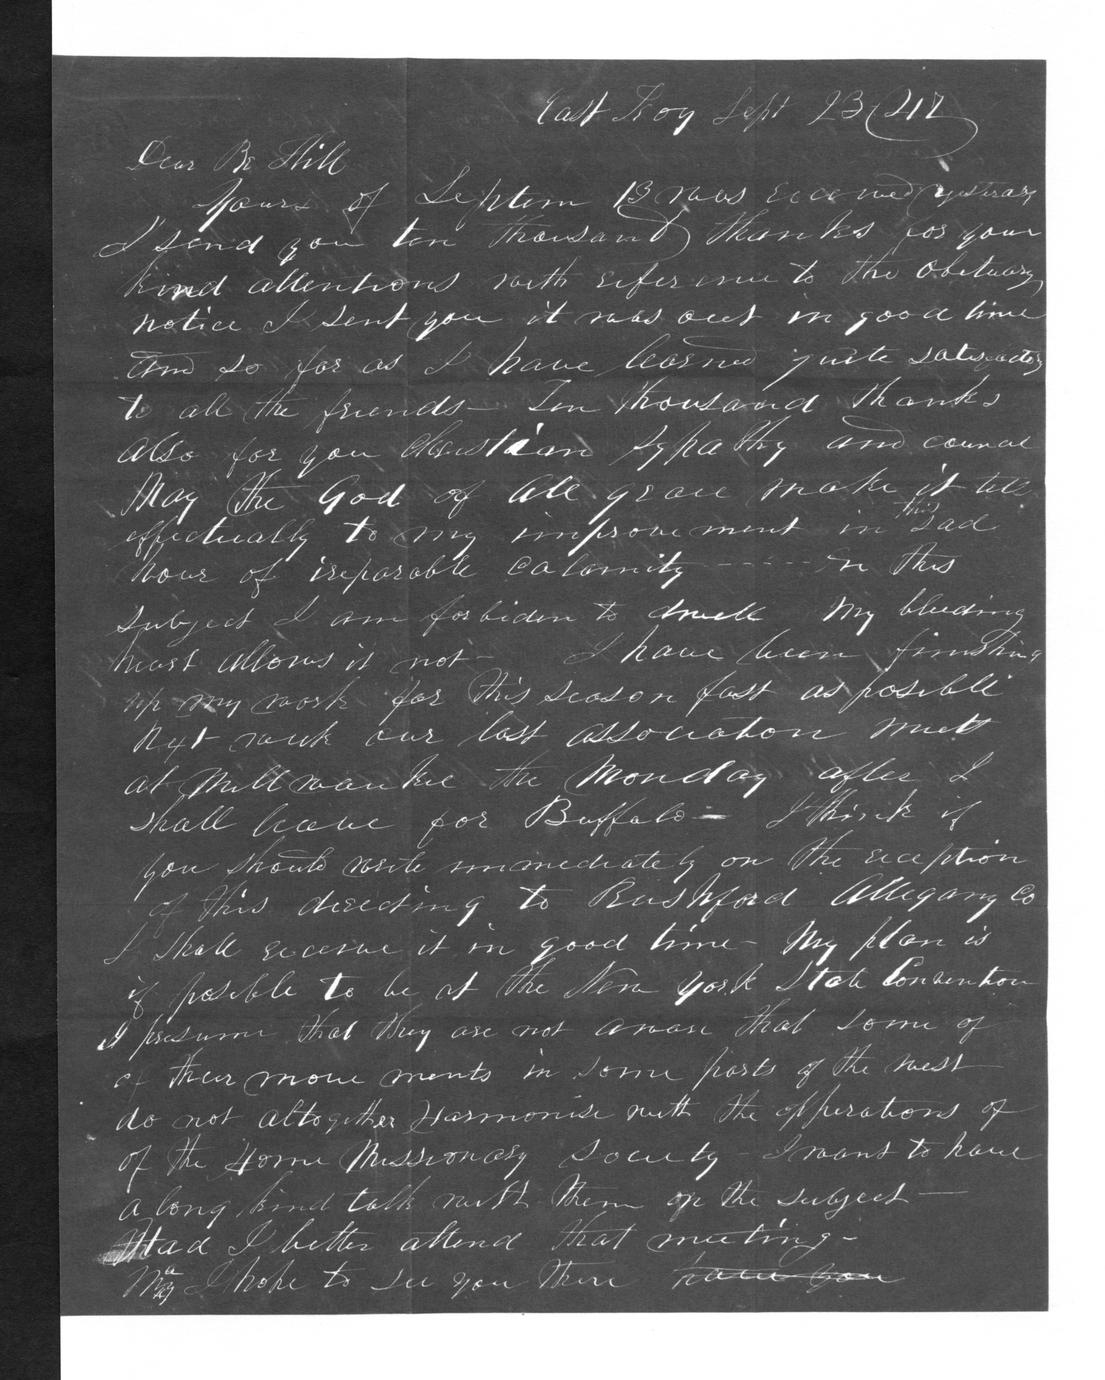 East Troy Sept 23 / 47
Dear Br Hill
Yours of Septem 13 was receved yesterday
I send you ten thousand thanks for your
kind attentions with referrence to the Obetuary
notice I sent you it was out in good time
and so far as I have learned quite satisfactory
to all the friends – Ten thousand thanks
also for you Christian sypathy and councel
May the God of all grace make it tell
effectually to my improvement in this sad
hour of ireparable calamity - - - - - On this
subject I am forbiden to dwell My bleeding
heart allows it not – I have been finishing
up my work for this season fast as posible
Next week our last association meet
at Millwaukie the Monday after I
shall leave for Buffalo – I think if
you should write immediately on the reception
of this directing to Rushford Allegany Co
I shall receive it in good time – My plan is
if posible to be at the New York State Convention
I presume that they are not aware that some of
of their move ments in some parts of the west
do not altogether Harmonise with the opperations of
of the Home Missionary Society – I want to have
a long kind talk with them on the subject —
Had I better attend that meeting –
May I hope to see you there have you